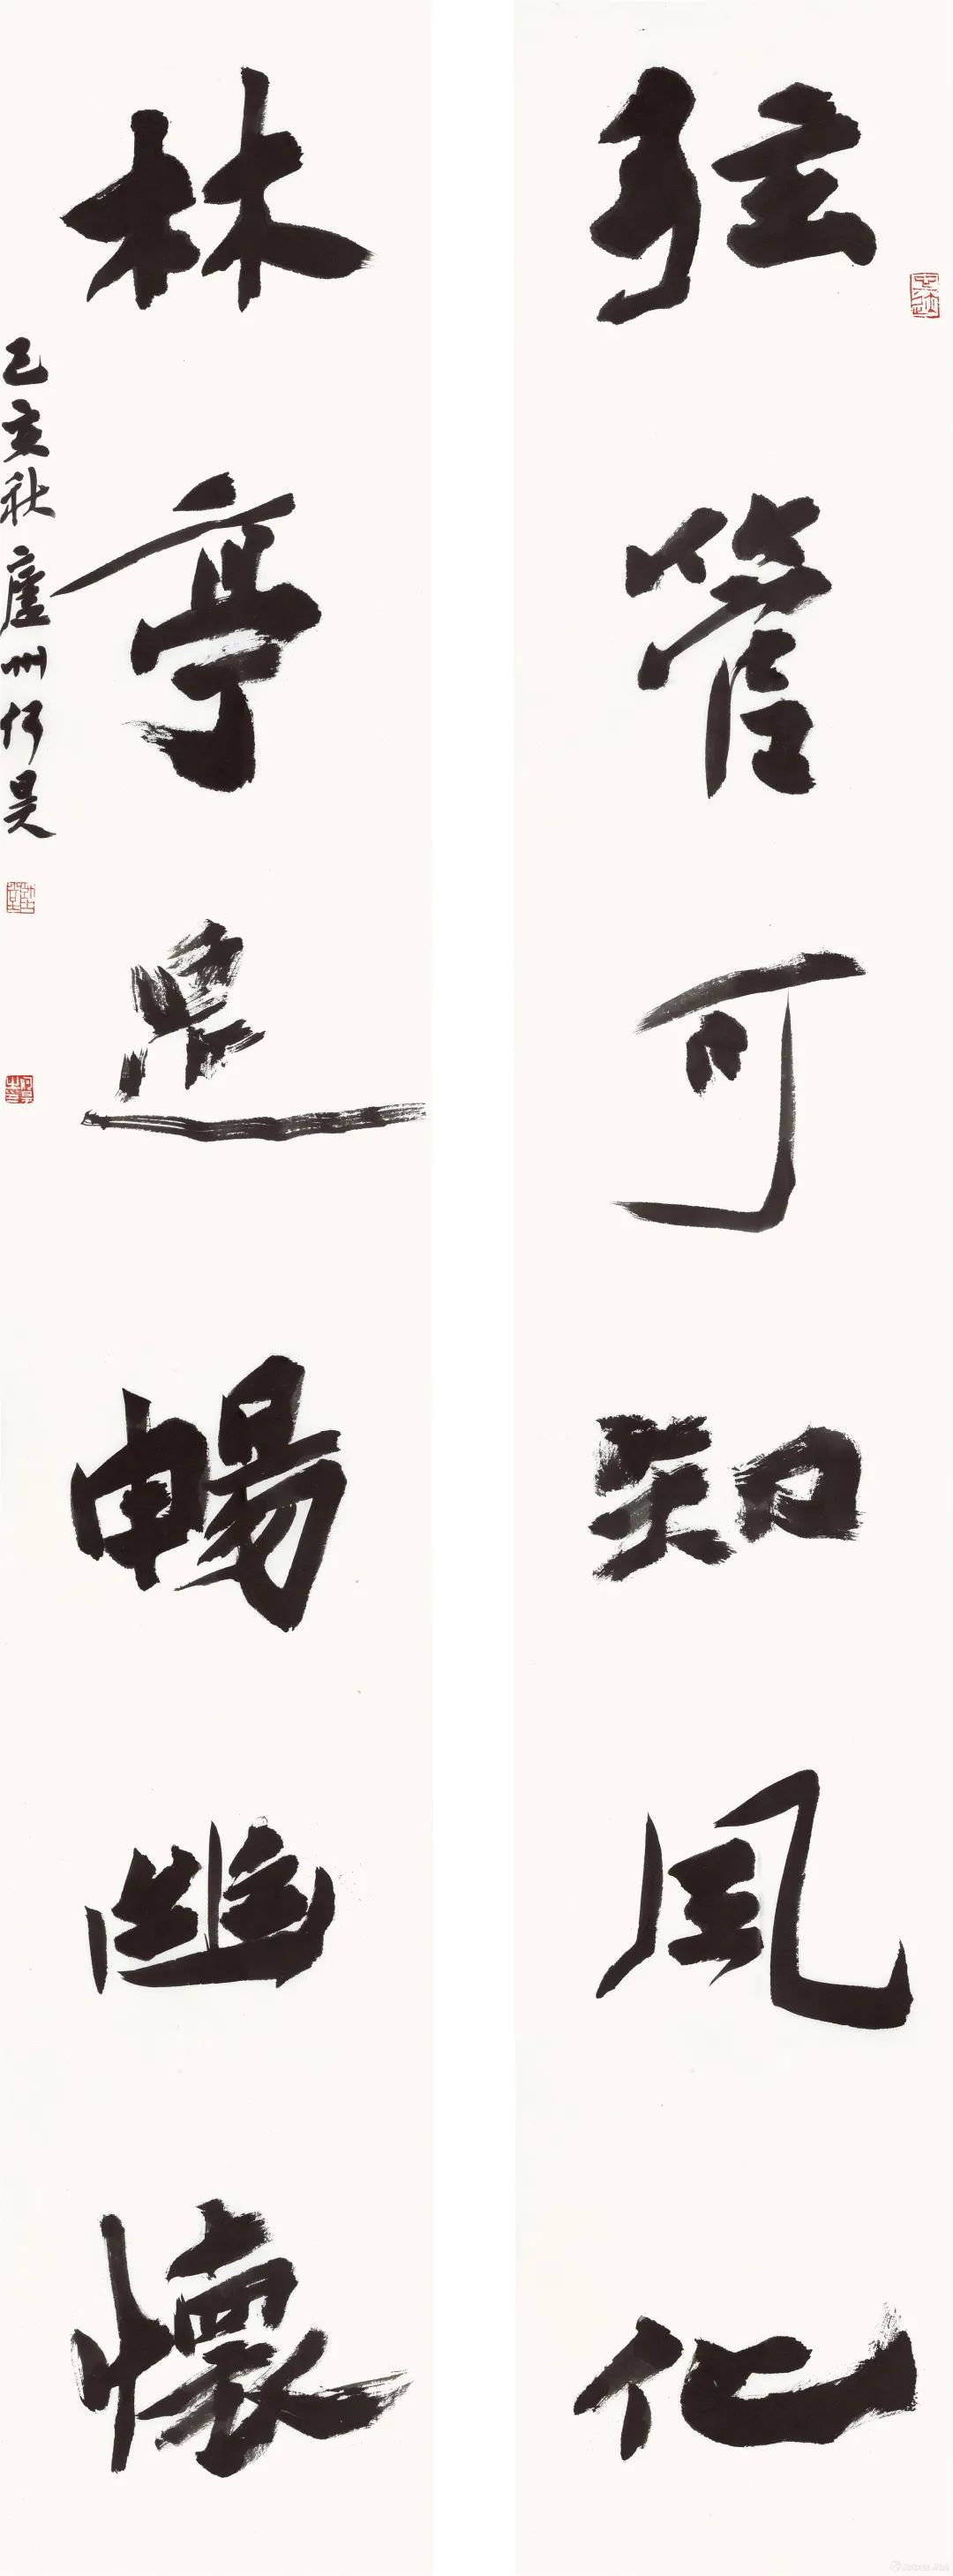 弦管可知風化
林亭是暢幽懷
己亥秋廬州何昊